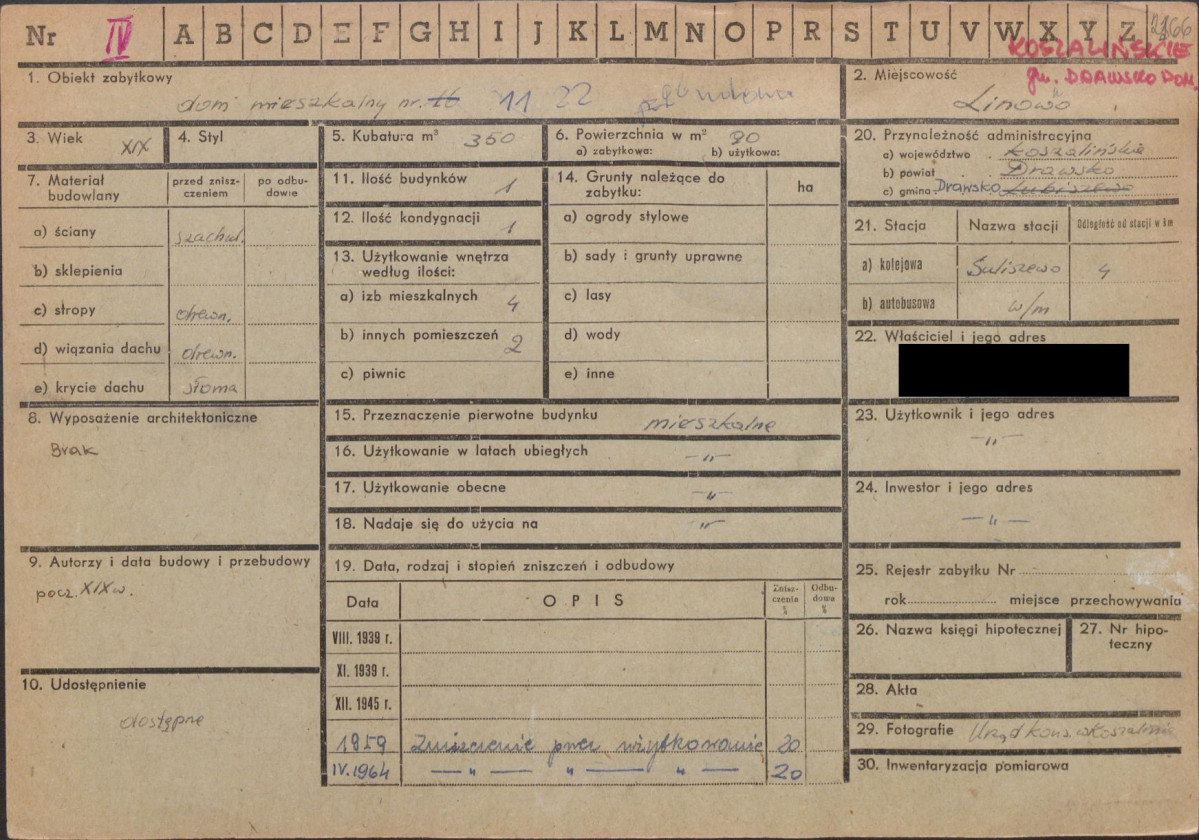 Nr IV A B C D E F G H I J K L M N O P R S T U V W X Y Z 2166
KOSZALIŃSKIE
gm. DRAWSKO POM.
1. Obiekt zabytkowy
dom mieszkalny nr. 16 11 22
2. Miejscowość
Linowo
3. Wiek XIX
4. Styl
5. Kubatura m³ 350
6. Powierzchnia w m² 90
a) zabytkowa: b) użytkowa:
7. Materiał budowlany
przed zniszczeniem
po odbudowie
a) ściany szachul.
b) sklepienia
c) stropy drewn.
d) wiązania dachu drewn.
e) krycie dachu słoma
8. Wyposażenie architektoniczne
Brak
9. Autorzy i data budowy i przebudowy
pocz. XIX w.
10. Udostępnienie
dostępne
11. Ilość budynków 1
12. Ilość kondygnacji 1
13. Użytkowanie wnętrza
według ilości:
a) izb mieszkalnych 4
b) innych pomieszczeń 2
c) piwnic
14. Grunty należące do
zabytku:
ha
a) ogrody stylowe
b) sady i grunty uprawne
c) lasy
d) wody
e) inne
15. Przeznaczenie pierwotne budynku mieszkalne
16. Użytkowanie w latach ubiegłych —"—
17. Użytkowanie obecne —"—
18. Nadaje się do użycia na —"—
19. Data, rodzaj i stopień zniszczeń i odbudowy
Data OPIS Zniszczenia % Odbudowa %
VIII. 1939 r.
XI. 1939 r.
XII. 1945 r.
1959 Zniszczenie przez użytkowanie 20
IV.1964 — " — " — " — 20
20. Przynależność administracyjna
a) województwo . Koszalińskie
b) powiat . Drawsko
c) gmina Drawsko Lubieszewo
21. Stacja Nazwa stacji Odległość od stacji w km
a) kolejowa Suliszewo 4
b) autobusowa w/m
22. Właściciel i jego adres
23. Użytkownik i jego adres
—"—
24. Inwestor i jego adres
—"—
25. Rejestr zabytku Nr
rok miejsce przechowywania
26. Nazwa księgi hipotecznej
27. Nr hipoteczny
28. Akta
29. Fotografie Urząd Kons. w Koszalinie
30. Inwentaryzacja pomiarowa